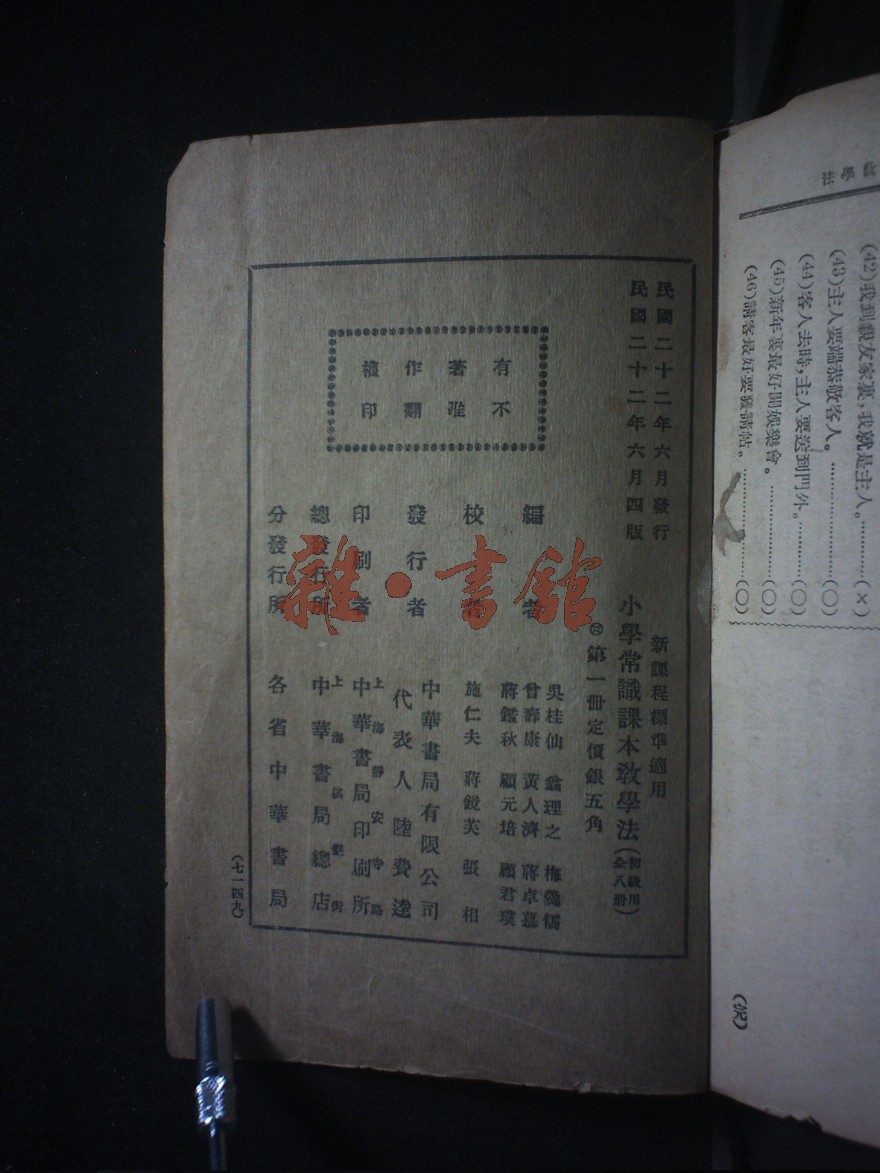 教學法
(42)我到親友家裏,我就是主人。…………(×)
(43)主人要端恭敬客人。…………(○)
(44)客人去時,主人要送到門外。…………(○)
(45)新年裏最好開娛樂會。…………(○)
(46)請客最好要發請帖。…………(○)
民國二十二年六月發行
民國二十二年六月四版
有著作權
不准翻印
新課程標準適用
小學常識課本教學法(初級用全八冊)
第一冊定價銀五角
編者
吳桂仙 翁理之 梅鷁儒
曾壽康 黃人濟 蔣卓慕
蔣鑑秋 顧元培 顧君璞
校者
施仁夫 蔣鏡芙 張相
發行者
中華書局有限公司
代表人陸費逵
印刷者
上海靜安寺路
中華書局印刷所
總發行所
上海棋盤街
中華書局總店
分發行所
各省中華書局
(七一四九)
雜·書館